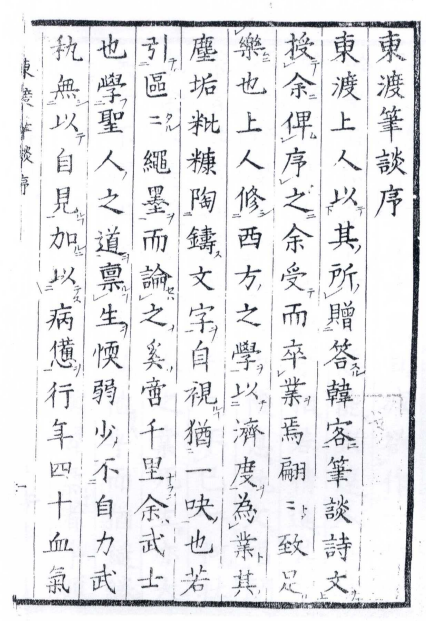 東渡筆談序
東渡上人以其所贈答韓客筆談詩文
授余俾序之余受而卒業焉翩〻致足
樂也上人修西方之學以濟度為業其
塵垢粃糠陶鑄文字自視猶一吷也若
引區〻繩墨而論之奚啻千里余武士
也學聖人之道禀生愞弱少不自力武
執無以自見加以病憊行年四十血氣
東渡筆談序